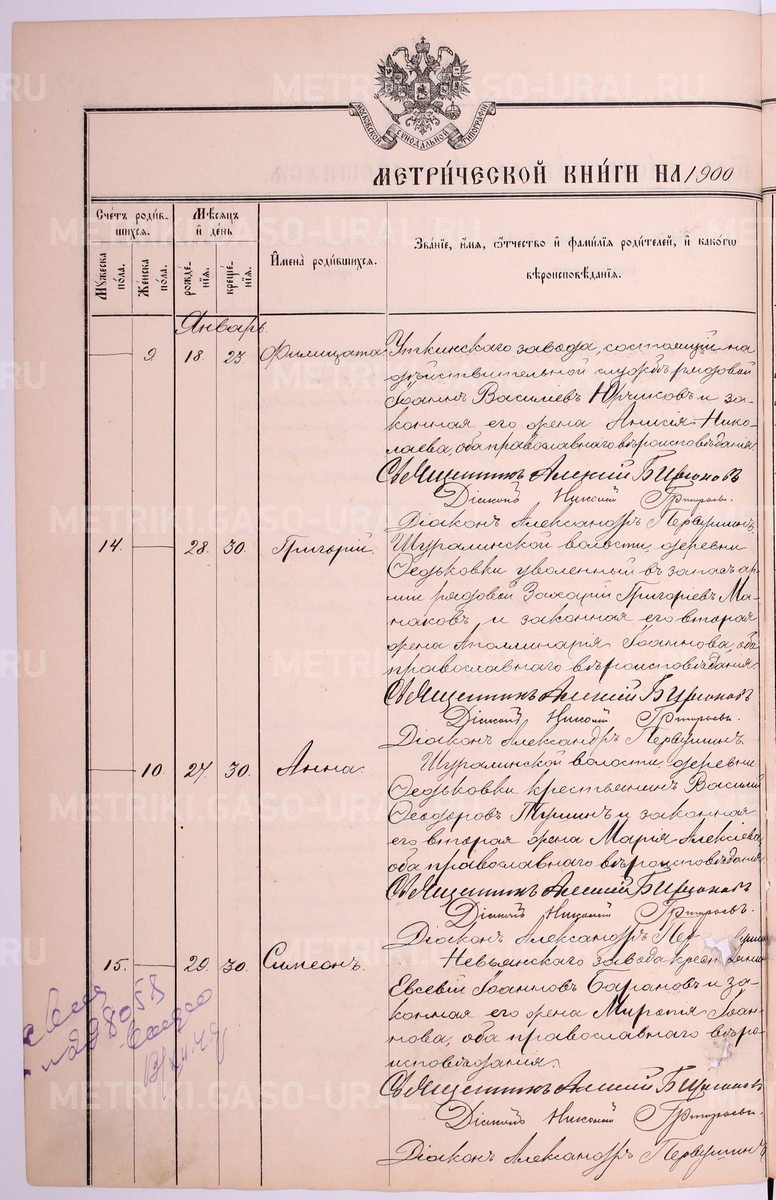 МОСКОВСКОЙ СѴНОДАЛЬНОЙ ТИПОГРАФІИ
МЕТРИ́ЧЕСКОЙ КНИ́ГИ НА 1900
Сче́тъ роди́в-
шихся.
Мѣ́сяцъ
и҆ де́нь
Му́жеска по́ла.
Же́нска по́ла.
рожде́-
нїя.
креще́-
нїя.
И҆мена̀ роди́вшихся.
Зва́нїе, и҆́мя, ѻ҆́тчество и҆ фами́лїя роди́телей, и҆ како́гѡ
вѣроисповѣ́данїя.
Январь.
9 18 23 Филицата
Уткинскаго завода, состоящій на
дѣйствительной службѣ рядовой
Іоаннъ Василіевъ Юрчиковъ и за-
конная его жена Анисія Нико-
лаева, оба православнаго вѣроисповѣданія.
Священникъ Алексій Бирюковъ
Діаконъ Николай
Діаконъ Александръ Первушинъ.
14. 28. 30. Григорій
Шуралинской волости, деревни
Ѳедьковки уволенный въ запасъ ар-
міи рядовой Захарій Григорьевъ Ма-
наковъ и законная его вторая
жена Аполлинарія Іоаннова, оба
православнаго вѣроисповѣданія.
Священникъ Алексій Бирюковъ
Діаконъ Николай
Діаконъ Александръ Первушинъ.
10. 27. 30. Анна
Шуралинской волости, деревни
Ѳедьковки крестьянинъ Василій
Ѳеодоровъ и законная
его вторая жена Марія Алексіева,
оба православнаго вѣроисповѣданія
Священникъ Алексій Бирюковъ
Діаконъ Николай
Діаконъ Александръ
15. 29. 30. Симеонъ
Невьянскаго завода
Евсевій Іоанновъ Барановъ и за-
конная его жена Іоан-
нова, оба православнаго вѣро-
исповѣданія.
Священникъ Алексій Бирюковъ
Діаконъ Николай
Діаконъ Александръ Первушинъ
METRIKI.GASO-URAL.RU